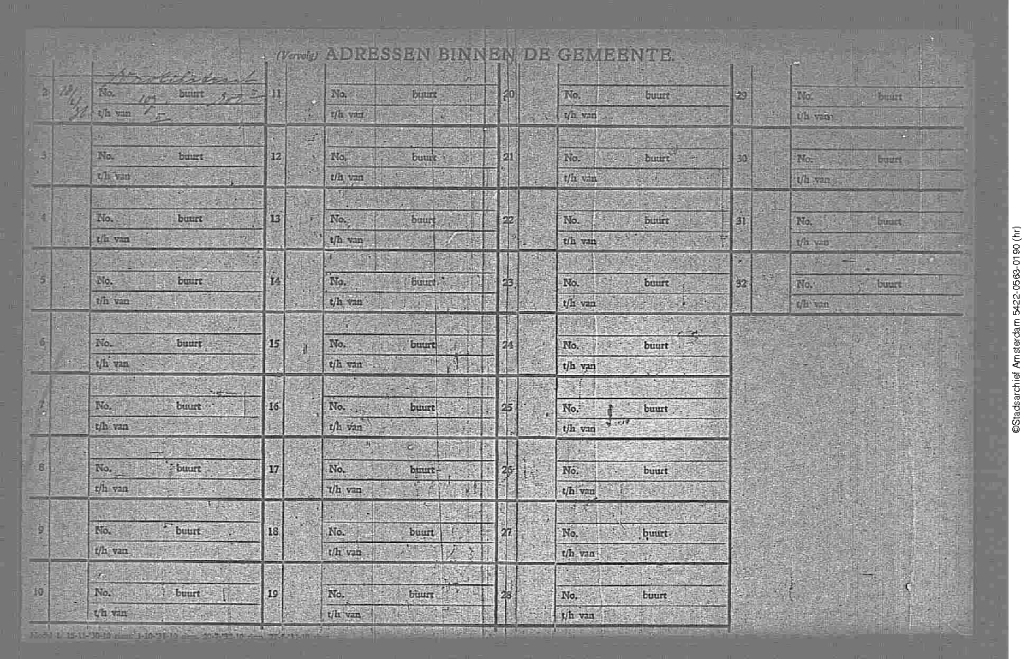 (Vervolg) ADRESSEN BINNEN DE GEMEENTE.
2 No. buurt
t/h van
3 No. buurt
t/h van
4 No. buurt
t/h van
5 No. buurt
t/h van
6 No. buurt
t/h van
7 No. buurt
t/h van
8 No. buurt
t/h van
9 No. buurt
t/h van
10 No. buurt
t/h van
11 No. buurt
t/h van
12 No. buurt
t/h van
13 No. buurt
t/h van
14 No. buurt
t/h van
15 No. buurt
t/h van
16 No. buurt
t/h van
17 No. buurt
t/h van
18 No. buurt
t/h van
19 No. buurt
t/h van
20 No. buurt
t/h van
21 No. buurt
t/h van
22 No. buurt
t/h van
23 No. buurt
t/h van
24 No. buurt
t/h van
25 No. buurt
t/h van
26 No. buurt
t/h van
27 No. buurt
t/h van
28 No. buurt
t/h van
29 No. buurt
t/h van
30 No. buurt
t/h van
31 No. buurt
t/h van
32 No. buurt
t/h van
©Stadsarchief Amsterdam 5422-0563-0190 (hr)